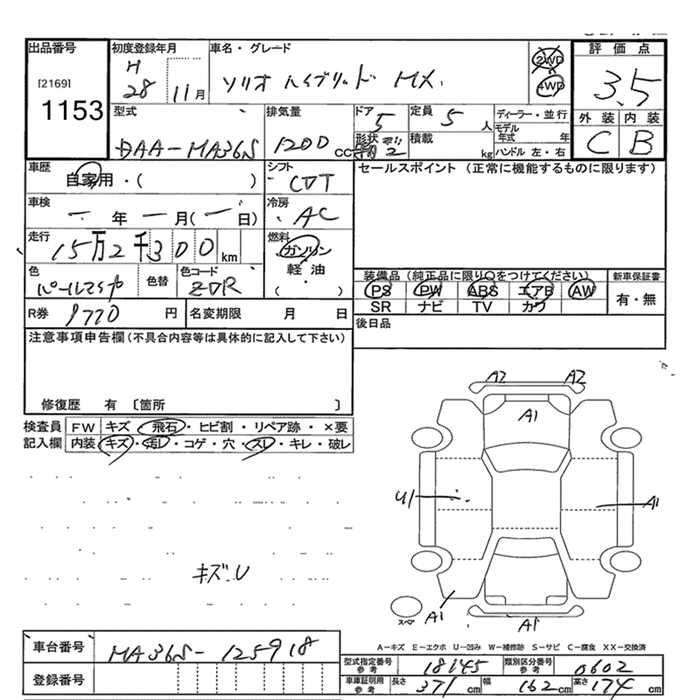 出品番号 初度登録年月 車名・グレード 評価点
[2169] H 28 11月 ソリオ ハイブリッド MX 2WD 4WD 3.5
1153 外装 内装
型式 排気量 ドア 5 定員 5人 ディーラー・並行 C B
DAA-MA36S 1200cc 形状 2 積載 kg モデル年式 年
ハンドル 左・右
車歴 自家用・( ) シフト CVT セールスポイント (正常に機能するものに限ります)
車検 一年一月(一日) 冷房 AC
走行 15万2千300km 燃料 ガソリン
軽油
( )
色 色替 色コード ZVR
装備品(純正品に限り〇をつけてください) 新車保証書
PS PW ABS エアB AW 有・無
SR ナビ TV カワ
R券 9770円 名変期限 月 日 後日品
注意事項申告欄(不具合内容等は具体的に記入して下さい)
修復歴 有 〔箇所 〕
検査員 FW キズ・飛石・ヒビ割・リペア跡・×要
記入欄 内装 キズ・汚レ・コゲ・穴・スレ・キレ・破レ
A2 A2
A1
U1 A1
キズ.U
A1 A1
スペア
A-キズ E-エクボ U-凹み W-補修跡 S-サビ C-腐食 XX-交換済
車台番号 MA36S-125918
登録番号
型式指定番号 参考 18145 類別区分番号 参考 0602
車庫証明用 参考 長さ 371cm 幅 162cm 高さ 174cm